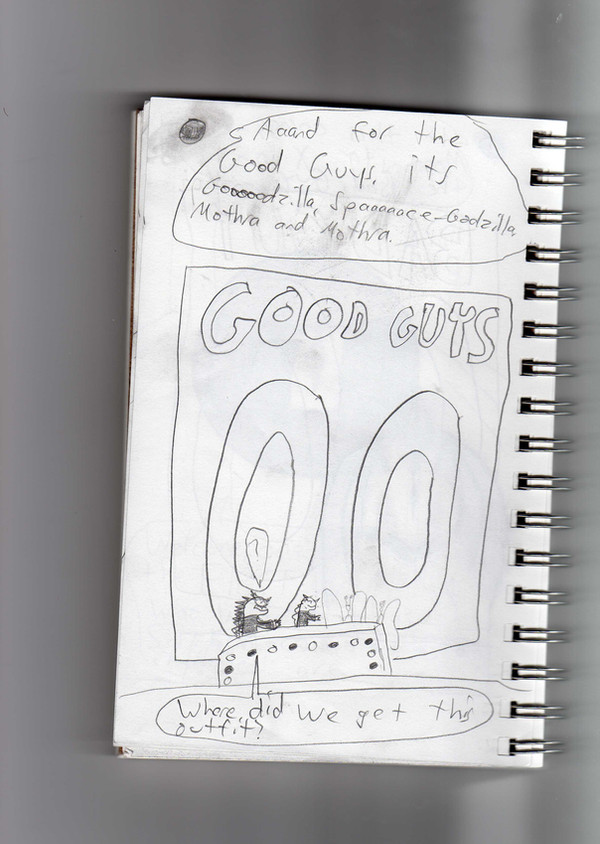 Aaand for the
Good Guys, its
Goooodzilla, Spaaaace-Godzilla,
Mothra and Mothra.
GOOD GUYS
00
Where did we get this
outfit?